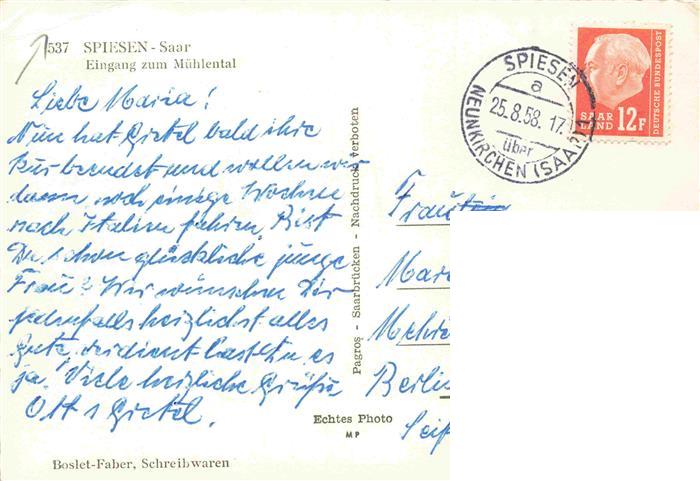 537 SPIESEN - Saar
Eingang zum Mühlental
Liebe Maria!
Nun hat Gretel bald ihre
Kur beendet und wollen wir
dann noch einige Wochen
nach Italien fahren. Bist
Du schon glückliche junge
Frau? Wir wünschen Dir
jedenfalls herzlichst alles
Gute, verdient hast Du es
ja. Viele herzliche Grüße
Ott s Gretel.
Boslet-Faber, Schreibwaren
Pagros - Saarbrücken - Nachdruck verboten
Echtes Photo
MP
SPIESEN
a
25.8.58. 17
über
NEUNKIRCHEN (SAAR)
SAAR
LAND 12F
DEUTSCHE BUNDESPOST
Frau
Mari
Berlin